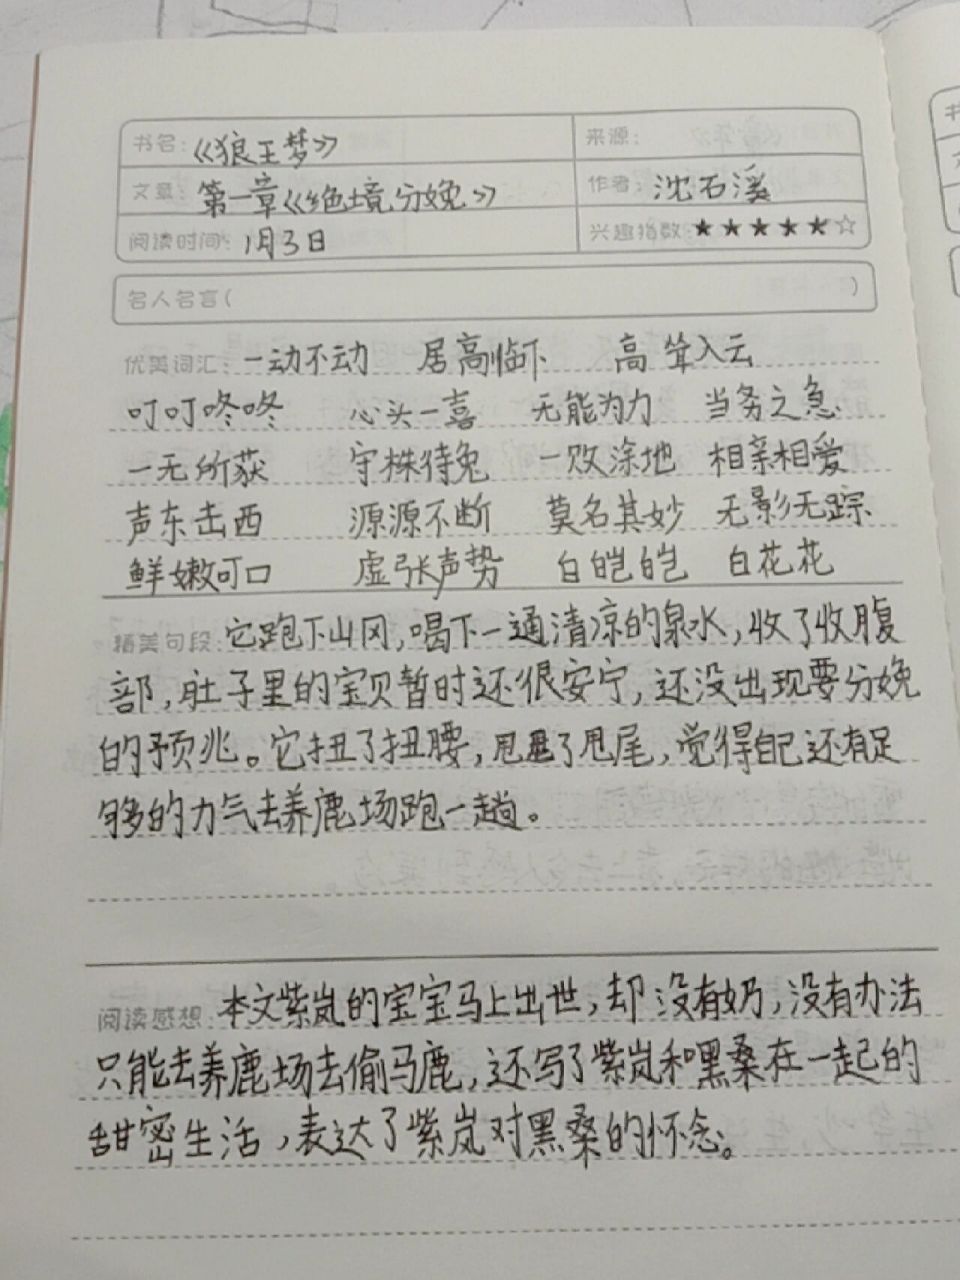 书名：《狼王梦》
来源：
文章：第一章《绝境分娩》
作者：沈石溪
阅读时间：1月3日
兴趣指数★★★★★☆
名人名言（ ）
优美词汇：一动不动 居高临下 高耸入云
叮叮咚咚 心头一喜 无能为力 当务之急
一无所获 守株待兔 一败涂地 相亲相爱
声东击西 源源不断 莫名其妙 无影无踪
鲜嫩可口 虚张声势 白皑皑 白花花
精美句段：它跑下山冈，喝下一通清凉的泉水，收了收腹
部，肚子里的宝贝暂时还很安宁，还没出现要分娩
的预兆。它扭了扭腰，甩了甩尾，觉得自己还有足
够的力气去养鹿场跑一趟。
阅读感想：本文紫岚的宝宝马上出世，却没有奶，没有办法
只能去养鹿场去偷马鹿，还写了紫岚和黑桑在一起的
甜密生活，表达了紫岚对黑桑的怀念。